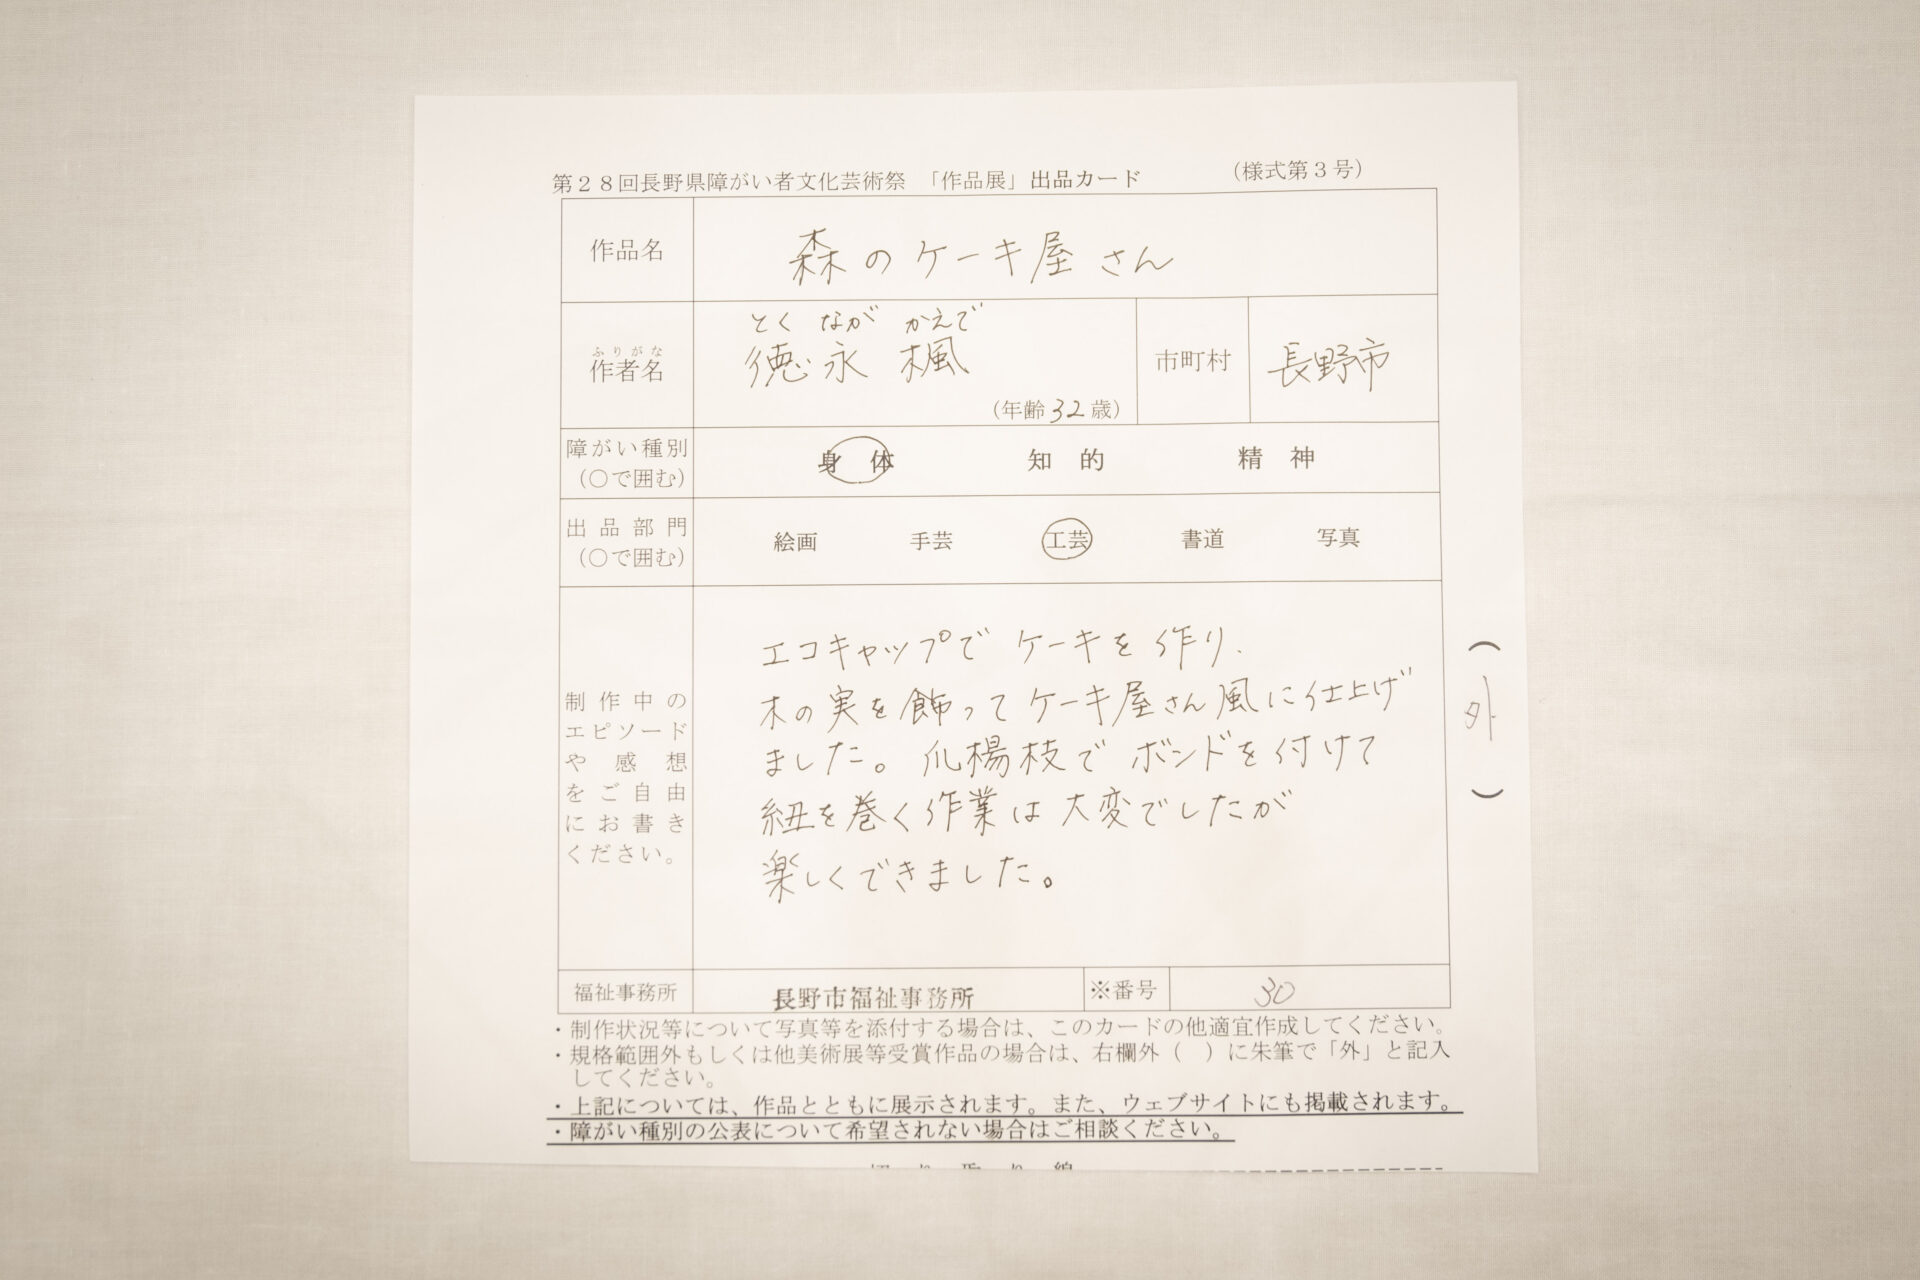 第28回長野県障がい者文化芸術祭 「作品展」出品カード (様式第3号)
作品名 森のケーキ屋さん
とく なが かえで
ふりがな
作者名 徳永 楓 市町村 長野市
(年齢32歳)
障がい種別
(○で囲む) 身体 知的 精神
出品部門
(○で囲む) 絵画 手芸 工芸 書道 写真
制作中の
エピソード
や感想
をご自由
にお書き
ください。
エコキャップで ケーキを作り、
木の実を飾ってケーキ屋さん風に仕上げ
ました。爪楊枝でボンドを付けて
紐を巻く作業は大変でしたが
楽しくできました。
(外)
福祉事務所 長野市福祉事務所 ※番号 30
・制作状況等について写真等を添付する場合は、このカードの他適宜作成してください。
・規格範囲外もしくは他美術展等受賞作品の場合は、右欄外( )に朱筆で「外」と記入
してください。
・上記については、作品とともに展示されます。また、ウェブサイトにも掲載されます。
・障がい種別の公表について希望されない場合はご相談ください。